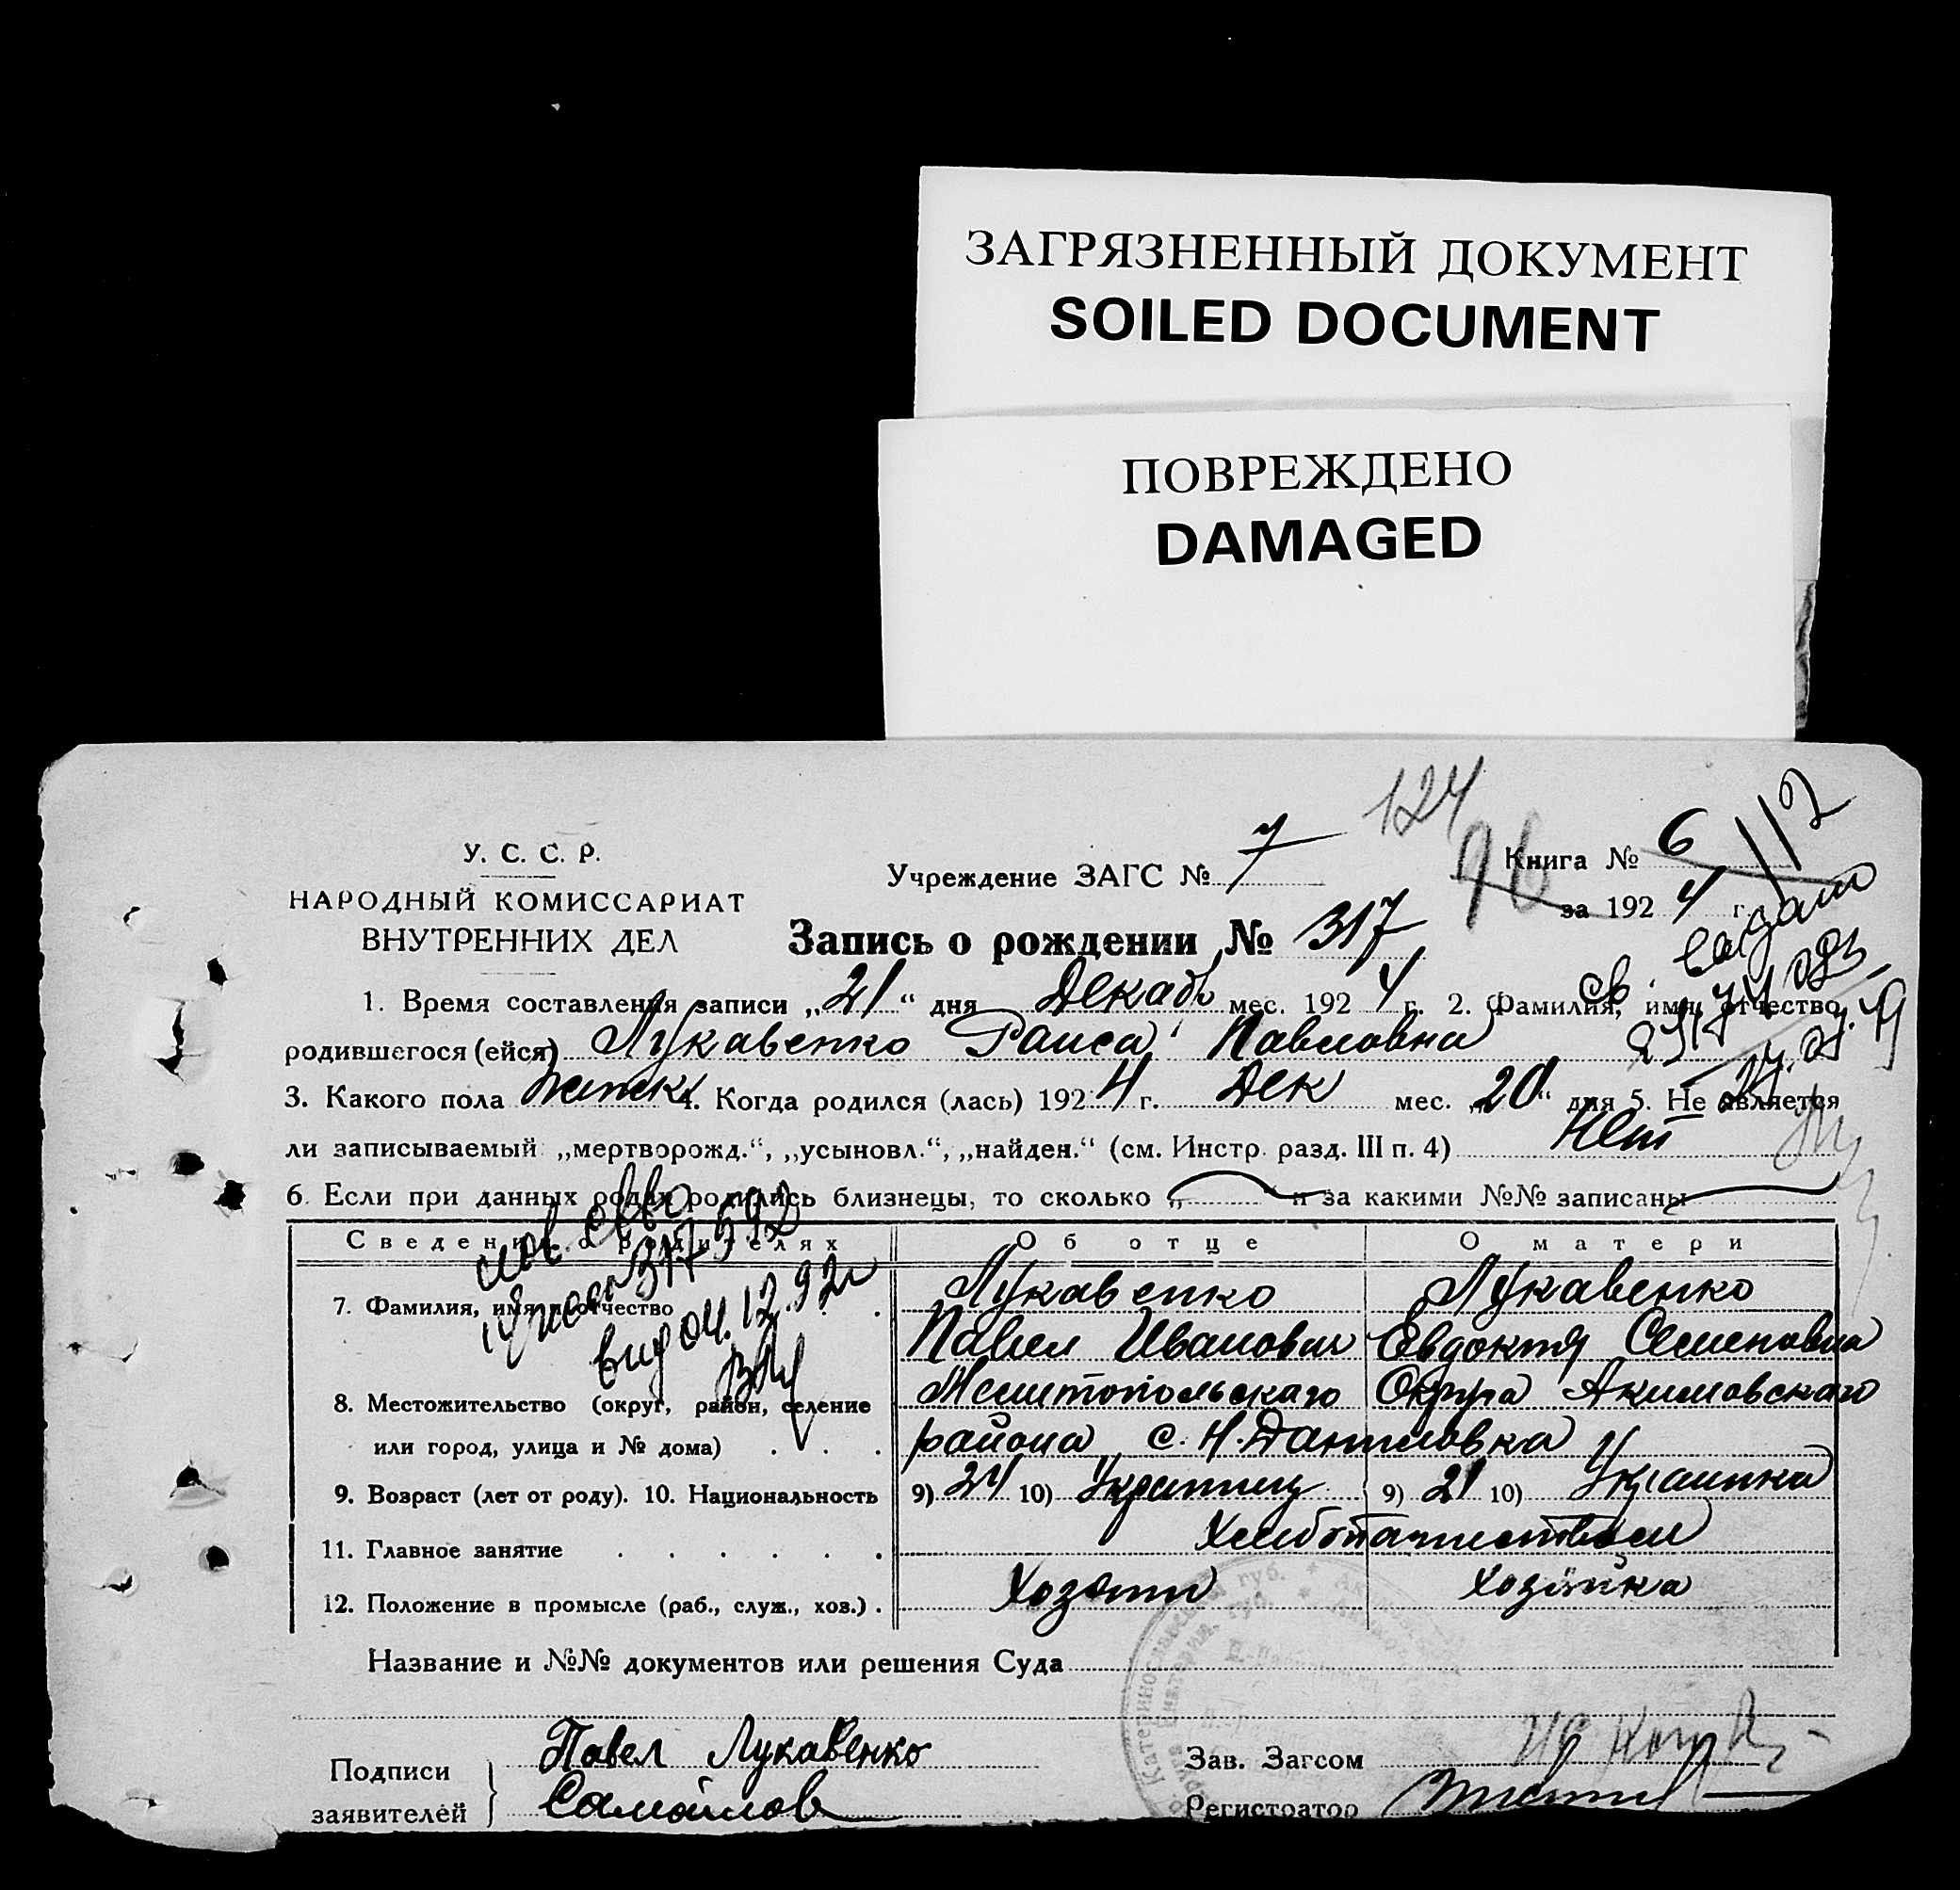 ЗАГРЯЗНЕННЫЙ ДОКУМЕНТ
SOILED DOCUMENT
ПОВРЕЖДЕНО
DAMAGED
124
112
96
У. С. С. Р.
НАРОДНЫЙ КОМИССАРИАТ
ВНУТРЕННИХ ДЕЛ
Учреждение ЗАГС № 7
Книга № 6
за 1924 г.
Запись о рождении № 317
1. Время составления записи „21“ дня Декабь мес. 1924 г. 2. Фамилия, имя, отчество
родившегося (ейся) Лукавенко Раиса Павловна
3. Какого пола Женск 4. Когда родился (лась) 1924 г. Дек мес. „20“ дня 5. Не является
ли записываемый „мертворожд.“, „усыновл.“, „найден.“ (см. Инстр. разд. III п. 4) Нет
6. Если при данных родах родились близнецы, то сколько „ “ и за какими №№ записаны
Сведения о родителях Об отце О матери
7. Фамилия, имя и отчество Лукавенко Лукавенко
Павел Иванович Евдокия Семеновна
8. Местожительство (округ, район, селение Мелитопольскаго Округа Акимовскаго
или город, улица и № дома) района с. Н. Даниловка
9. Возраст (лет от роду). 10. Национальность 9) 24 10) Украинец 9) 21 10) Украинка
11. Главное занятие Хлебопашеством
12. Положение в промысле (раб., служ., хоз.) Хозяин Хозяйка
Название и №№ документов или решения Суда
Подписи заявителей
Павел Лукавенко
Самойлов
Зав. Загсом
Регистратор